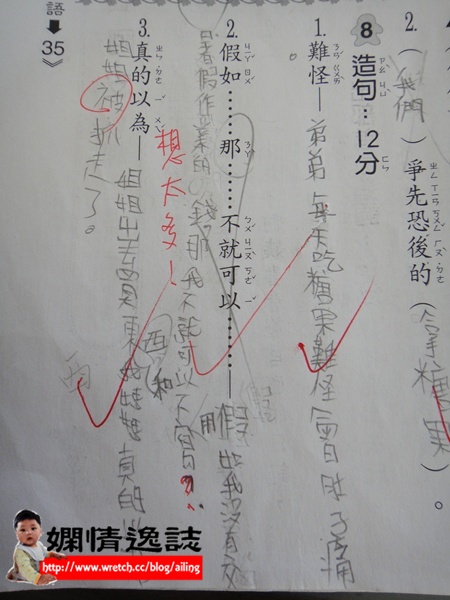 2.(我們)爭先恐後的(拿糖果)。
8 造句：12分
1.難怪─弟弟每天吃糖果難怪會肚子痛
。
2.假如……那……不就可以……─假如我沒有交
暑假作業的錢那我不就可以不用寫
想太多！
3.真的以為─姐姐出去買東西和媽媽真的以
姐姐被抓走了。
西
語➡35》
嫻情逸誌
http://www.wretch.cc/blog/ailing